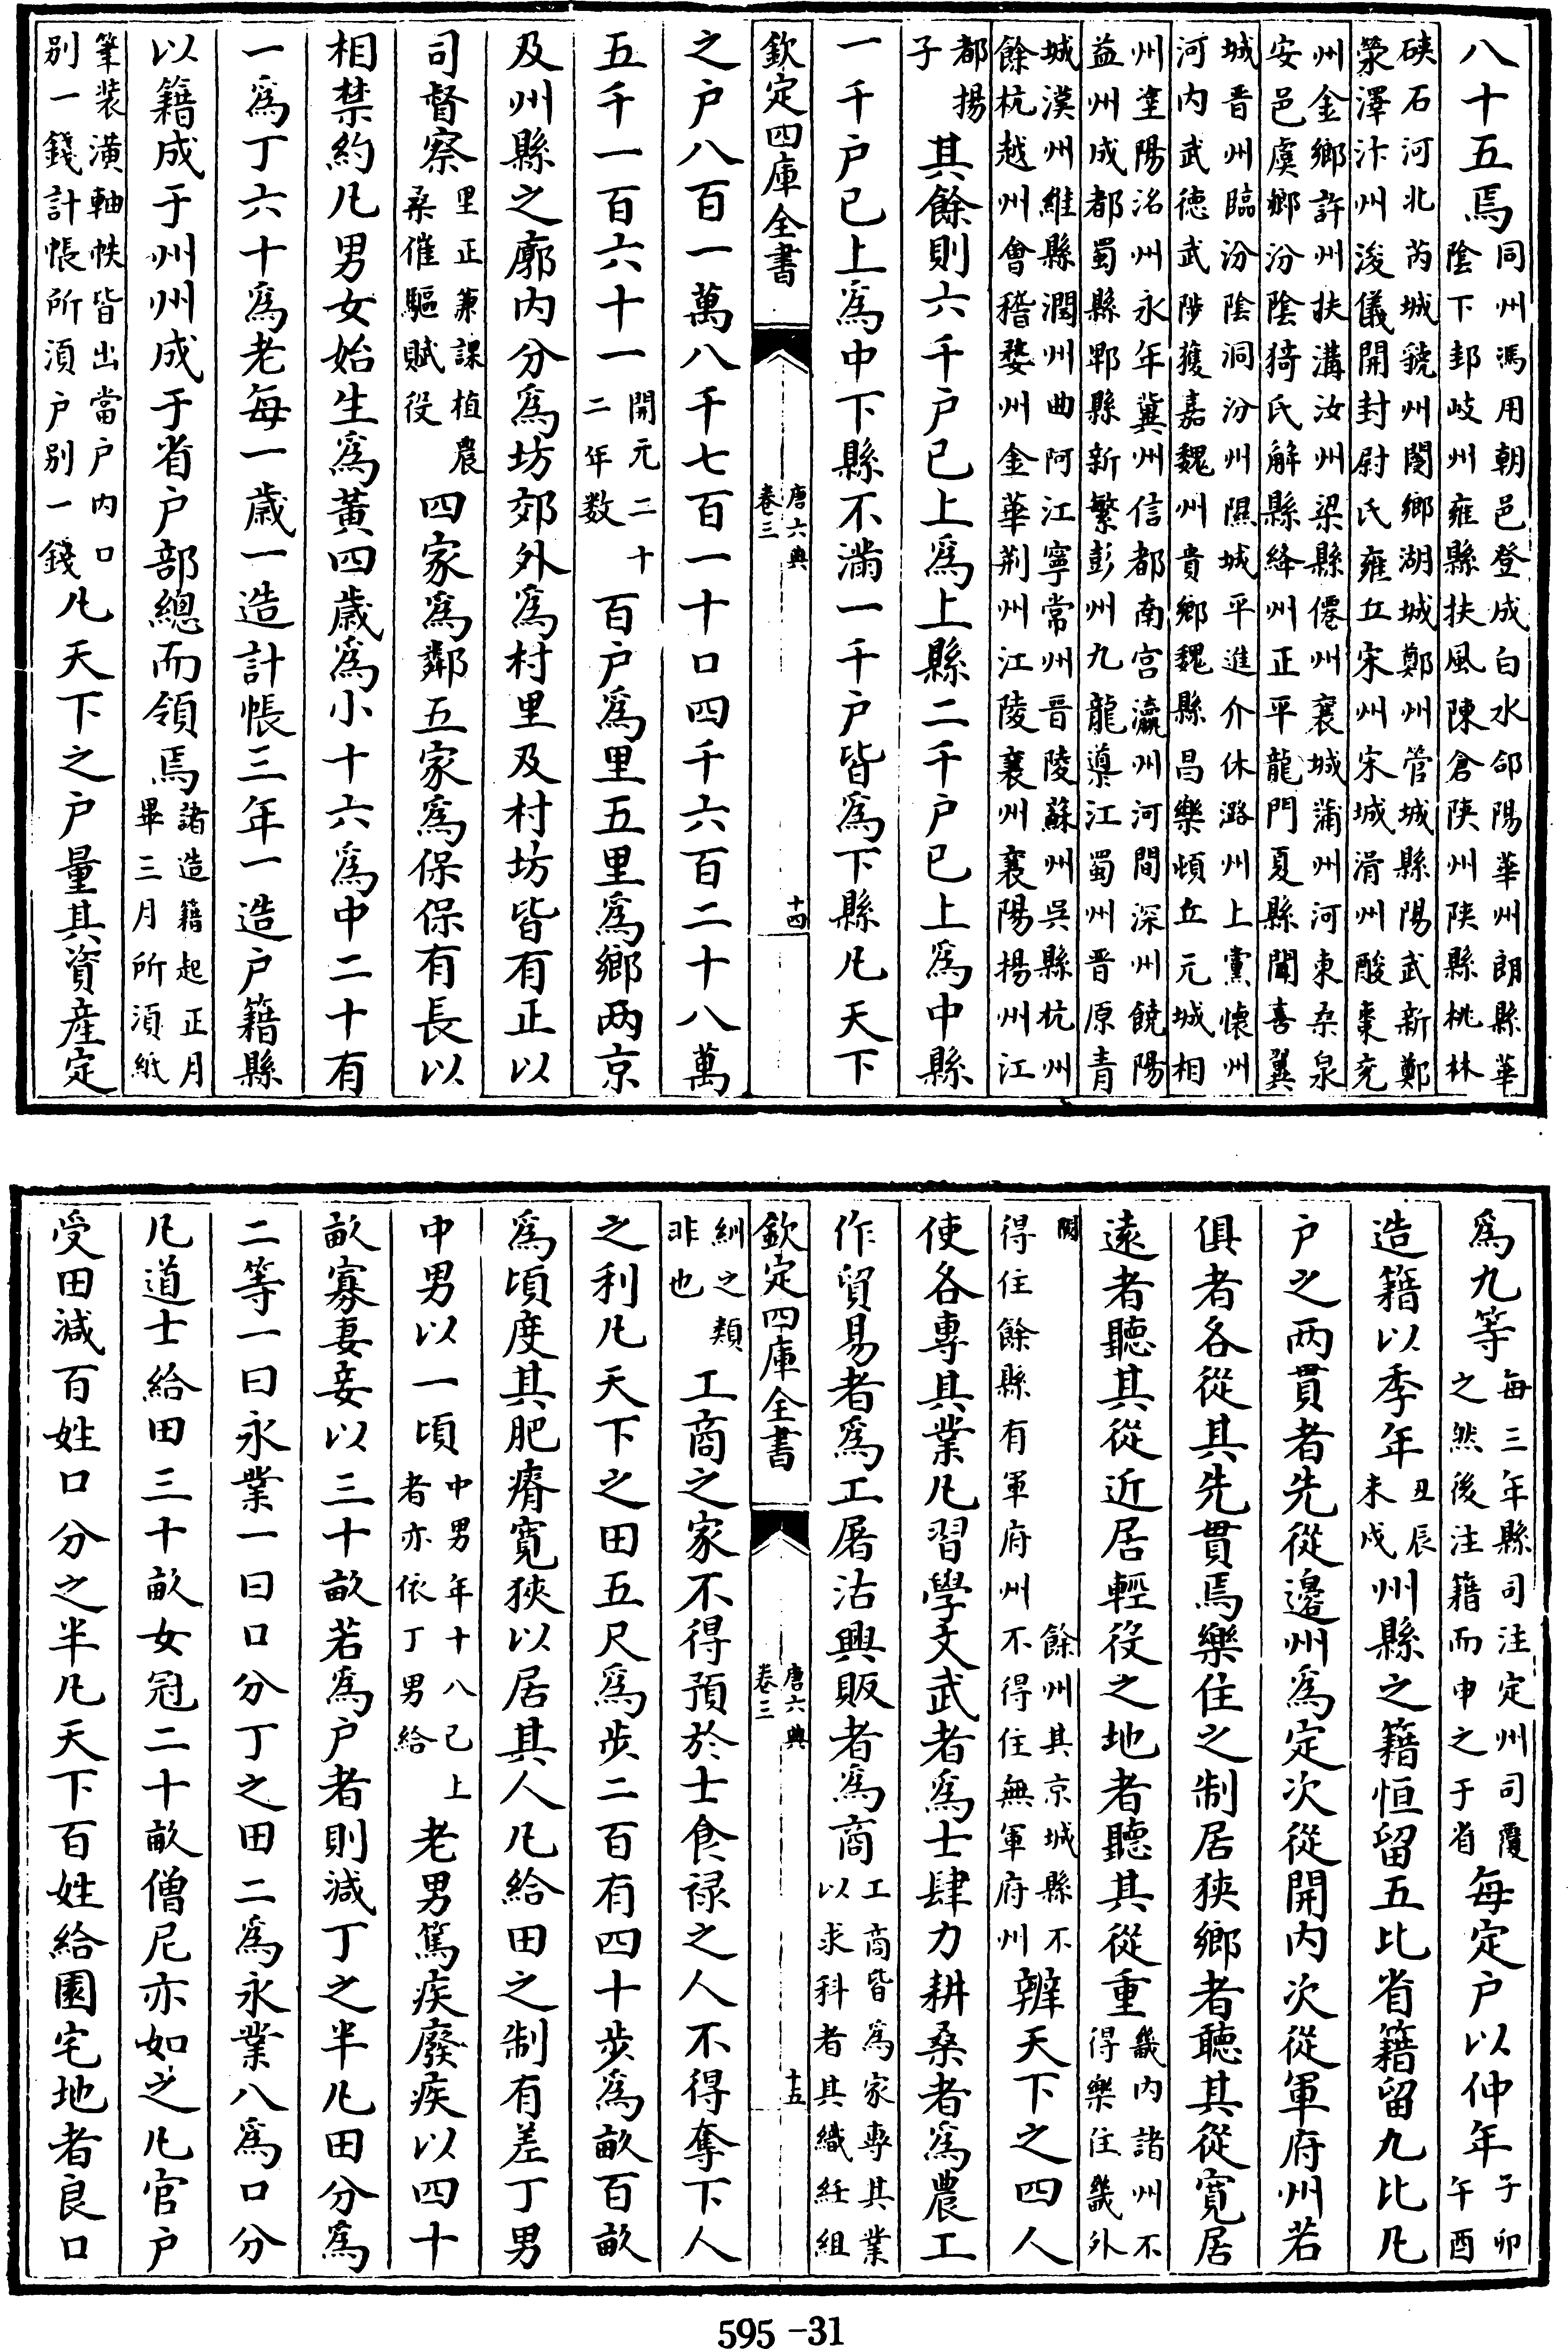 八十五焉同州馮用朝邑登成白水郃陽華州朗縣華陰下邽岐州雍縣扶風陳倉陜州陜縣桃林
硤石河北芮城虢州閿鄉湖城鄭州管城縣陽武新鄭滎澤汴州浚儀開封尉氏雍丘宋州宋城滑州酸棗兖
州金鄉許州扶溝汝州梁縣僊州襄城蒲州河東桑泉安邑虞鄉汾陰猗氏解縣絳州正平龍門夏縣聞喜翼
城晉州臨汾陰洞汾州隰城平進介休潞州上黨懷州河内武德武陟獲嘉魏州貴鄉魏縣昌樂頓丘元城相
州堂陽洺州永年冀州信都南宫瀛州河間深州饒陽益州成都蜀縣郫縣新繁彭州九龍導江蜀州晉原青
城漢州維縣潤州曲阿江寧常州晉陵蘇州吳縣杭州餘杭越州會稽婺州金華荆州江陵襄州襄陽揚州江
都揚子其餘則六千户已上爲上縣二千户已上爲中縣
一千户已上爲中下縣不滿一千户皆爲下縣凡天下
欽定四庫全書 唐六典卷三 十四
之户八百一萬八千七百一十口四千六百二十八萬
五千一百六十一開元二十二年数百户爲里五里爲鄉两京
及州縣之廓内分爲坊郊外爲村里及村坊皆有正以
司督察里正兼課植農桑催驅賦役四家爲鄰五家爲保保有長以
相禁約凡男女始生爲黃四歲爲小十六爲中二十有
一爲丁六十爲老每一歲一造計帳三年一造户籍縣
以籍成于州州成于省户部總而領焉諸造籍起正月畢三月所須紙
筆装潢軸帙皆出當户内口别一錢計帳所須户别一錢凡天下之户量其資産定
爲九等每三年縣司注定州司覆之然後注籍而申之于省每定户以仲年子卯午酉
造籍以季年丑辰未戌州縣之籍恒留五比省籍留九比凡
户之两貫者先從邊州爲定次從關内次從軍府州若
俱者各從其先貫焉樂住之制居狹鄉者聽其從寬居
遠者聽其從近居輕役之地者聽其從重畿内諸州不得樂住畿外
闕餘州其京城縣不得住餘縣有軍府州不得住無軍府州辨天下之四人
使各專其業凡習學文武者爲士肆力耕桑者爲農工
作貿易者爲工屠沽興販者爲商工商皆爲家專其業以求科者其織紝組
紃之類非也工商之家不得預於士食禄之人不得奪下人
欽定四庫全書 唐六典卷三 十五
之利凡天下之田五尺爲步二百有四十步爲畝百畝
爲頃度其肥瘠寬狹以居其人凡給田之制有差丁男
中男以一頃中男年十八已上者亦依丁男給老男篤疾廢疾以四十
畝寡妻妾以三十畝若爲户者則減丁之半凡田分爲
二等一曰永業一曰口分丁之田二爲永業八爲口分
凡道士給田三十畝女冠二十畝僧尼亦如之凡官户
受田減百姓口分之半凡天下百姓給園宅地者良口
595-31